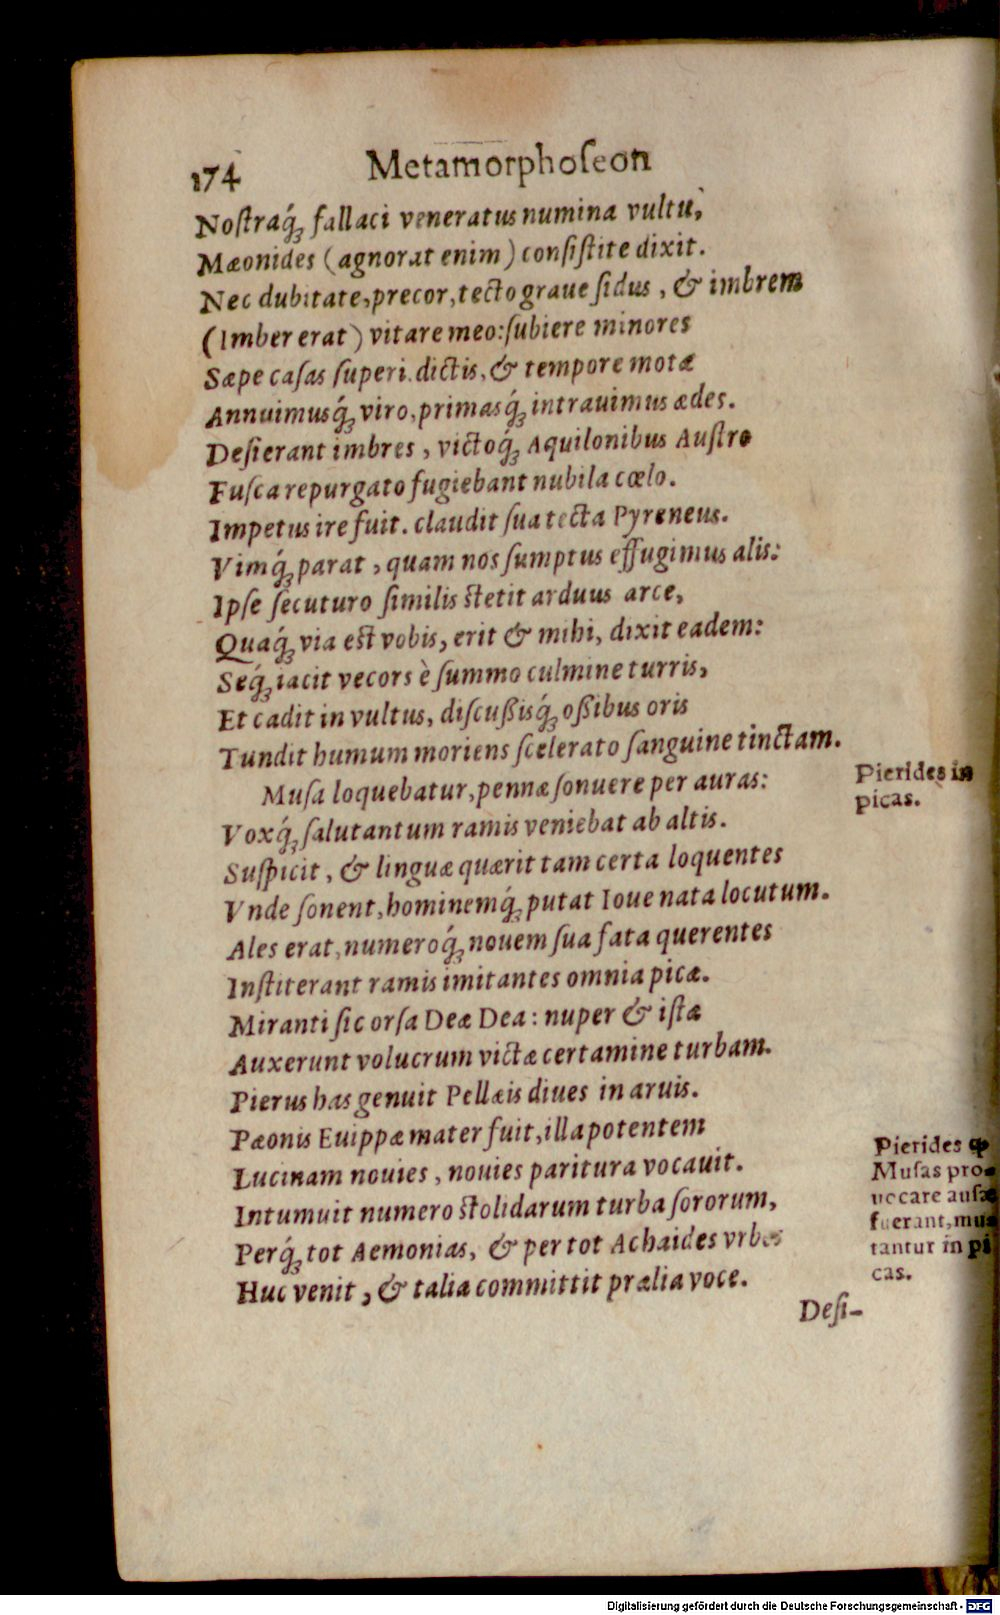 174 Metamorphoſeon
Noſtraq́ꝫ fallaci veneratus numina vultu,
Mæonides (agnorat enim) conſiſtite dixit.
Nec dubitate, precor, tecto graue ſidus, & imbrem
(Imber erat) vitare meo: ſubiere minores
Sæpe caſas ſuperi. dictis, & tempore motæ
Annuimusq́ꝫ viro, primasq́ꝫ intrauimus ædes.
Deſierant imbres, victoq́ꝫ Aquilonibus Auſtro
Fuſca repurgato fugiebant nubila cœlo.
Impetus ire fuit. claudit ſua tecta Pyreneus.
Vimq́ꝫ parat, quam nos ſumptus effugimus alis:
Ipſe ſecuturo ſimilis ſtetit arduus arce,
Quaq́ꝫ via eſt vobis, erit & mihi, dixit eadem:
Seq́ꝫ iacit vecors è ſummo culmine turris,
Et cadit in vultus, diſcußisq́ꝫ oßibus oris
Tundit humum moriens ſcelerato ſanguine tinctam.
Muſa loquebatur, pennæ ſonuere per auras:
Pierides in
picas.
Voxq́ꝫ ſalutantum ramis veniebat ab altis.
Suſpicit, & linguæ quærit tam certa loquentes
Vnde ſonent, hominemq́ꝫ putat Ioue nata locutum.
Ales erat, numeroq́ꝫ nouem ſua fata querentes
Inſtiterant ramis imitantes omnia picæ.
Miranti ſic orſa Deæ Dea: nuper & iſtæ
Auxerunt volucrum victæ certamine turbam.
Pierus has genuit Pellæis diues in aruis.
Pæonis Euippæ mater fuit, illa potentem
Lucinam nouies, nouies paritura vocauit.
Intumuit numero ſtolidarum turba ſororum,
Perq́ꝫ tot Aemonias, & per tot Achaides vrbes
Huc venit, & talia committit prælia voce.
Pierides
Muſas pro-
uocare auſæ
fuerant, mu-
tantur in pi
cas.
Deſi-
Digitalisierung gefördert durch die Deutsche Forschungsgemeinschaft - DFG